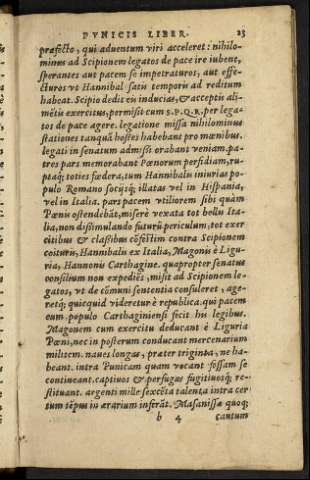 PVNICIS LIBER. 23
præfecto, qui aduentum viri acceleret: nihilo-
minus ad Scipionem legatos de pace ire iubent,
sperantes aut pacem se impetraturos, aut effe-
cturos vt Hannibal satis temporis ad reditum
habeat. Scipio dedit eis inducias, & acceptis ali-
mētis exercitus, permisit cum S.P.Q.R. per lega-
tos de pace agere. legatione missa nihilominus
stationes tanquā hostes habebant pro mœnibus.
legati in senatum admissi orabant veniam. pa-
tres pars memorabant Pœnorum perfidiam, ru-
ptaq; toties fœdera, tum Hannibalis iniurias po-
pulo Romano socijsq; illatas vel in Hispania,
vel in Italia. pars pacem vtiliorem sibi quàm
Pœnis ostendebāt, miserè vexata tot bellis Ita-
lia, non dissimulando futurū periculum, tot exer
citibus & classibus cōfestim contra Scipionem
coituris, Hannibalis ex Italia, Magonis è Ligu-
ria, Hannonis Carthagine. quapropter senatus
consilium non expediēs, misit ad Scipionem le-
gatos, vt de cōmuni sententia consuleret, age-
retq; quicquid videretur è republica. qui pacem
cum populo Carthaginiensi fecit his legibus.
Magonem cum exercitu deducant è Liguria
Pœni, nec in posterum conducant mercenarium
militem. naues longas, præter triginta, ne ha-
beant. intra Punicam quam vocant fossam se
contineant. captiuos & perfugas fugitiuosq; re-
stituant. argenti mille sexcēta talenta intra cer-
tum tēpus in ærarium inferāt. Masanissæ quoq;
b 4 tantum